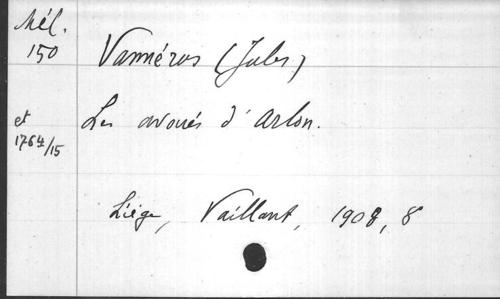 Mél.
150
Vannérus (Jules)
et
1764/15
Les avoués d'Arlon.
Liège, Vaillant, 1908, 8